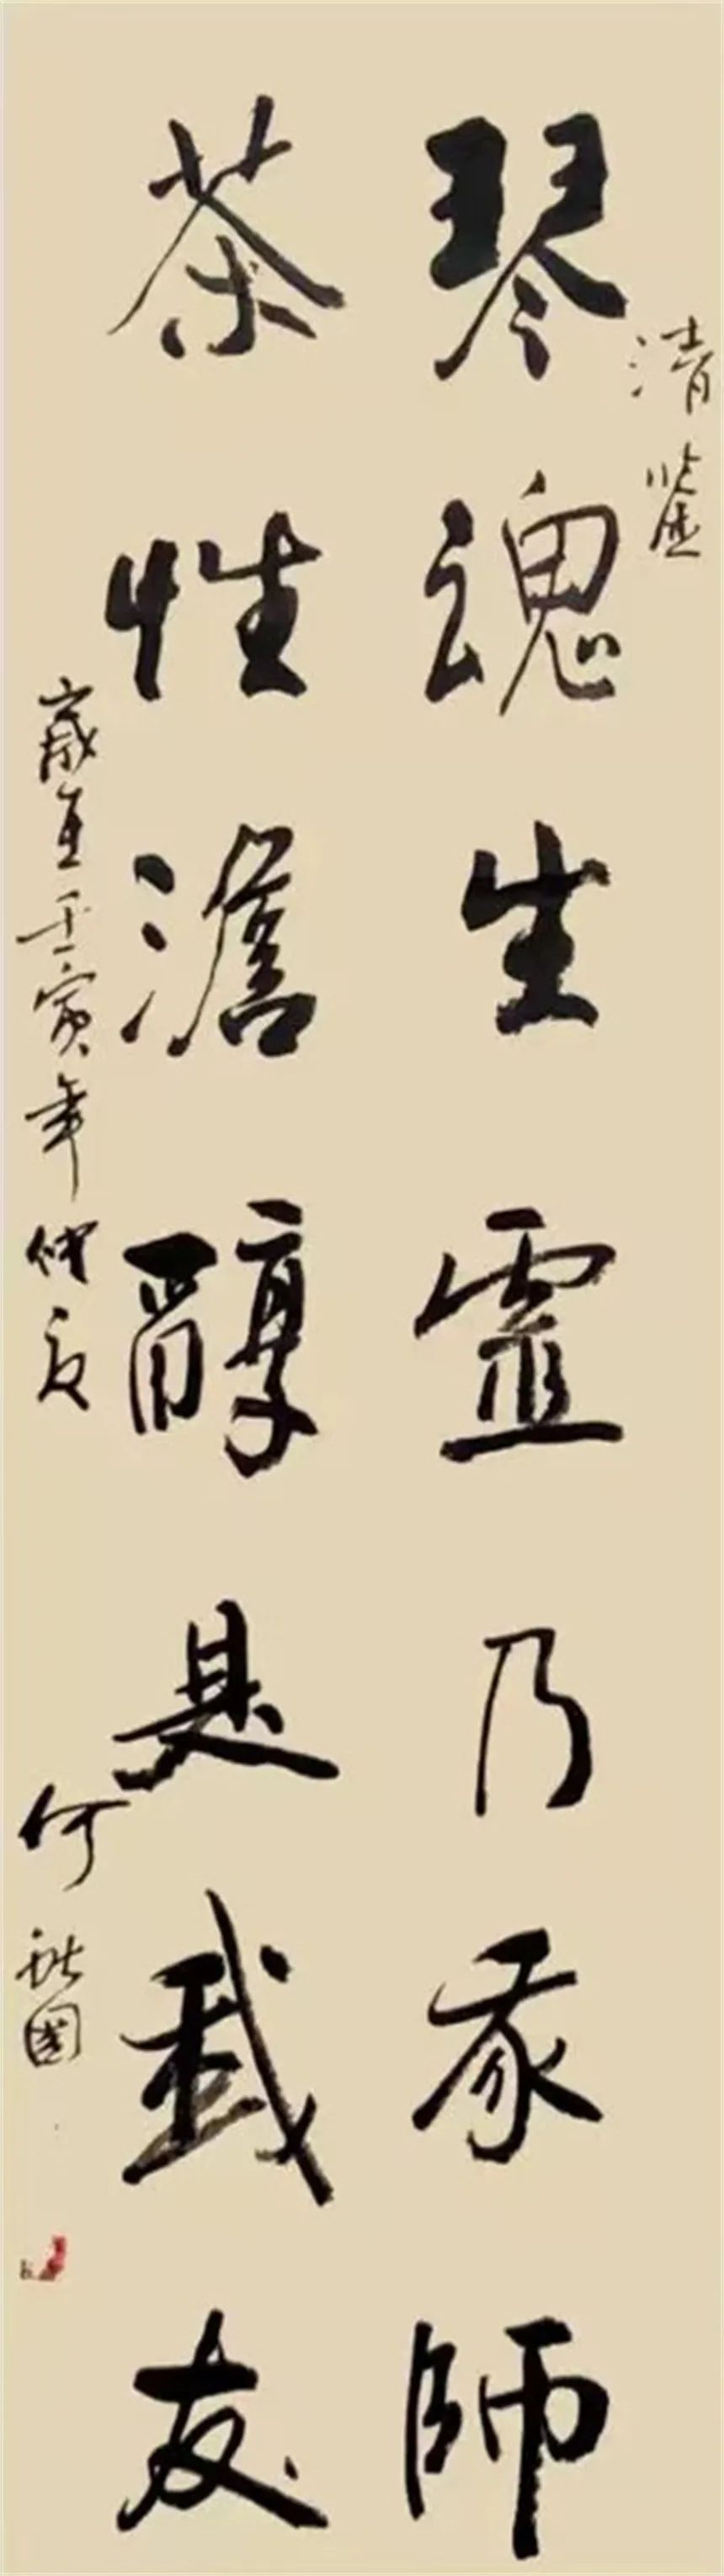 清鑒
琴魂生靈乃家師
茶性澹醇是我友
歲在壬寅年仲夏
何國